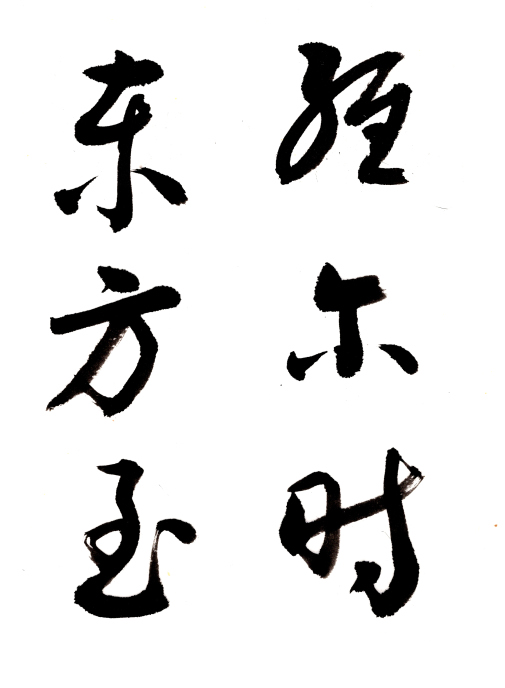 经尔时
东方至